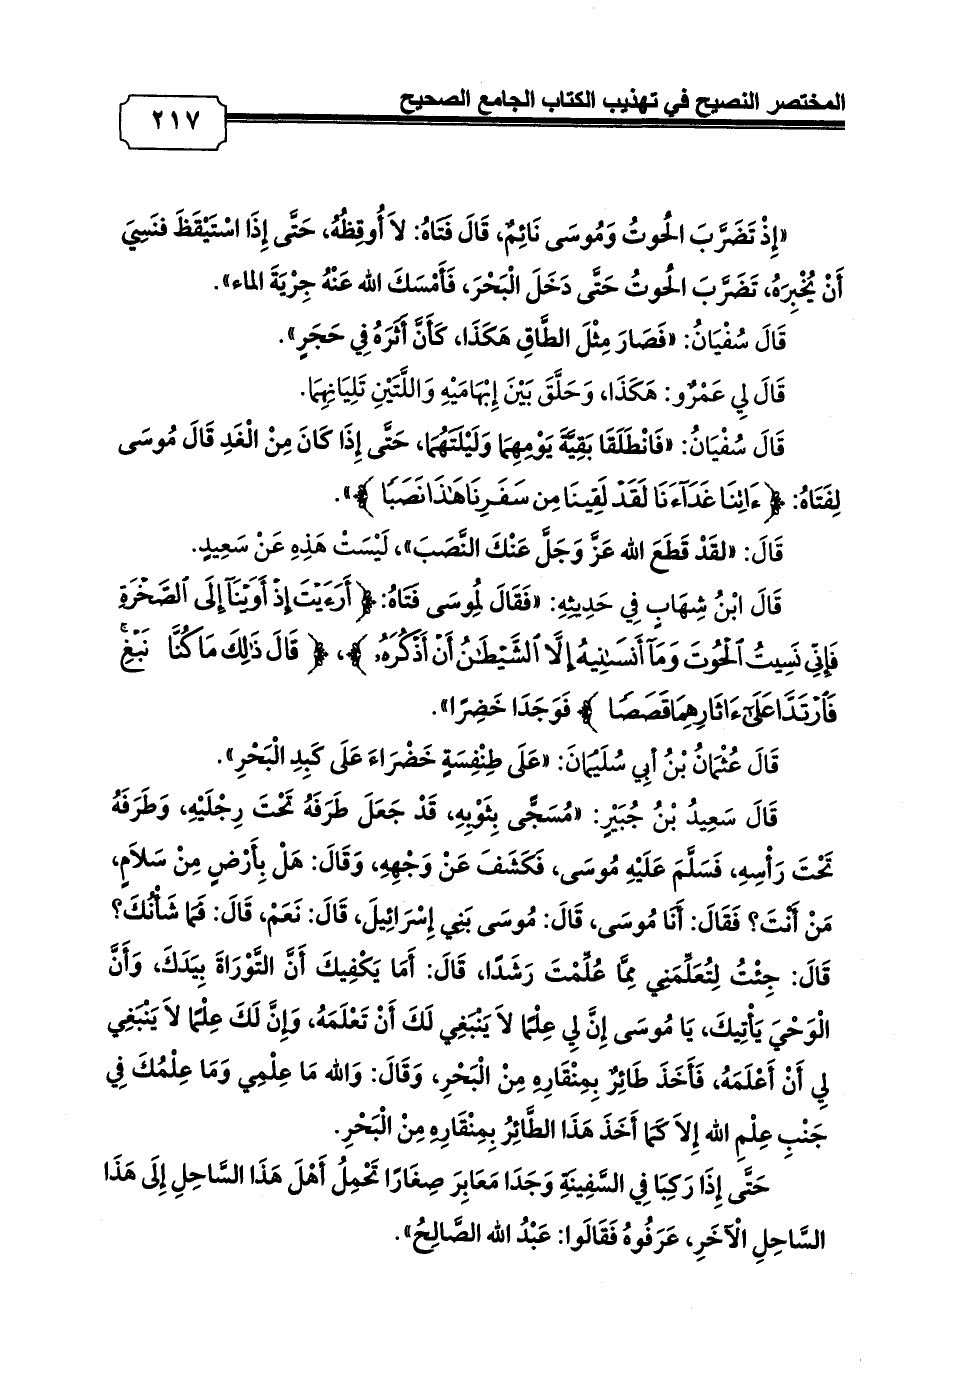 المختصر النصيح في تهذيب الكتاب الجامع الصحيح
٢١٧
«إِذْ تَضَرَّبَ الْحُوتُ وَمُوسَى نَائِمٌ، قَالَ فَتَاهُ: لاَ أُوقِظُهُ، حَتَّى إِذَا اسْتَيْقَظَ فنَسِيَ
أَنْ يُخْبِرَهُ، تَضَرَّبَ الْحُوتُ حَتَّى دَخَلَ الْبَحْرَ، فَأَمْسَكَ الله عَنْهُ جِرْيَةَ الماء».
قَالَ سُفْيَانُ: «فَصَارَ مِثْلَ الطَّاقِ هَكَذَا، كَأَنَّ أَثَرَهُ فِي حَجَرٍ».
قَالَ لِي عَمْرٌو: هَكَذَا، وَحَلَّقَ بَيْنَ إِبْهَامَيْهِ وَاللَّتَيْنِ تَلِيَانِهِمَا.
قَالَ سُفْيَانُ: «فَانْطَلَقَا بَقِيَّةَ يَوْمِهِمَا وَلَيْلَتَهُمَا، حَتَّى إِذَا كَانَ مِنْ الْغَدِ قَالَ مُوسَى
لِفَتَاهُ: ﴿ ءَاتِنَا غَدَآءَنَا لَقَدْ لَقِينَا مِن سَفَرِنَا هَٰذَا نَصَبًا ﴾».
قَالَ: «لقَدْ قَطَعَ الله عَزَّ وَجَلَّ عَنْكَ النَّصَبَ»، لَيْسَتْ هَذِهِ عَنْ سَعِيدٍ.
قَالَ ابْنُ شِهَابٍ فِي حَدِيثِهِ: «فَقَالَ لِمُوسَى فَتَاهُ: ﴿ أَرَءَيْتَ إِذْ أَوَيْنَآ إِلَى ٱلصَّخْرَةِ
فَإِنِّي نَسِيتُ ٱلْحُوتَ وَمَآ أَنسَىٰنِيهُ إِلَّا ٱلشَّيْطَٰنُ أَنْ أَذْكُرَهُۥ ﴾، ﴿ قَالَ ذَٰلِكَ مَا كُنَّا نَبْغِۚ
فَٱرْتَدَّا عَلَىٰٓ ءَاثَارِهِمَا قَصَصًا ﴾ فَوَجَدَا خَضِرًا».
قَالَ عُثْمَانُ بْنُ أبِي سُلَيْمَانَ: «عَلَى طِنْفِسَةٍ خَضْرَاءَ عَلَى كَبِدِ الْبَحْرِ».
قَالَ سَعِيدُ بْنُ جُبَيْرٍ: «مُسَجًّى بِثَوْبِهِ، قَدْ جَعَلَ طَرَفَهُ تَحْتَ رِجْلَيْهِ، وَطَرَفَهُ
تَحْتَ رَأْسِهِ، فَسَلَّمَ عَلَيْهِ مُوسَى، فَكَشَفَ عَنْ وَجْهِهِ، وَقَالَ: هَلْ بِأَرْضٍ مِنْ سَلاَمٍ،
مَنْ أَنْتَ؟ فَقَالَ: أَنَا مُوسَى، قَالَ: مُوسَى بَنِي إِسْرَائِيلَ، قَالَ: نَعَمْ، قَالَ: فَمَا شَأْنُكَ؟
قَالَ: جِئْتُ لِتُعَلِّمَنِي مِمَّا عُلِّمْتَ رَشَدًا، قَالَ: أَمَا يَكْفِيكَ أَنَّ التَّوْرَاةَ بِيَدَكَ، وَأَنَّ
الْوَحْيَ يَأْتِيكَ، يَا مُوسَى إِنَّ لِي عِلْمًا لاَ يَنْبَغِي لَكَ أَنْ تَعْلَمَهُ، وَإِنَّ لَكَ عِلْمًا لاَ يَنْبَغِي
لِي أَنْ أَعْلَمَهُ، فَأَخَذَ طَائِرٌ بِمِنْقَارِهِ مِنْ الْبَحْرِ، وَقَالَ: وَالله مَا عِلْمِي وَمَا عِلْمُكَ فِي
جَنْبِ عِلْمِ الله إِلاَ كَمَا أَخَذَ هَذَا الطَّائِرُ بِمِنْقَارِهِ مِنْ الْبَحْرِ.
حَتَّى إِذَا رَكِبَا فِي السَّفِينَةِ وَجَدَا مَعَابِرَ صِغَارًا تَحْمِلُ أَهْلَ هَذَا السَّاحِلِ إِلَى هَذَا
السَّاحِلِ الْآخَرِ، عَرَفُوهُ فَقَالُوا: عَبْدُ الله الصَّالِحُ».